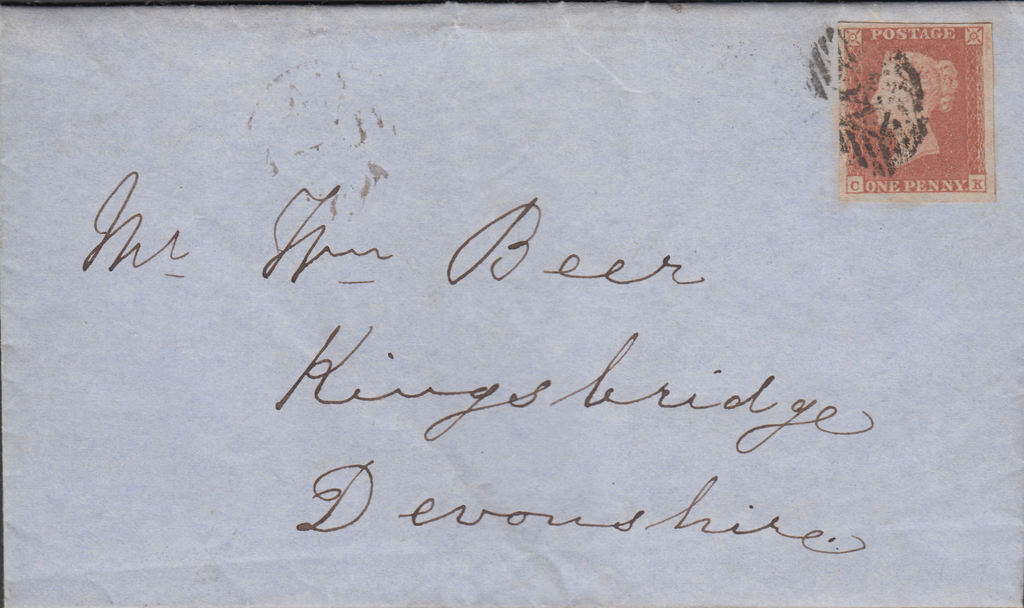 POSTAGE
C ONE PENNY K
Mr Wm Beer
Kingsbridge
Devonshire